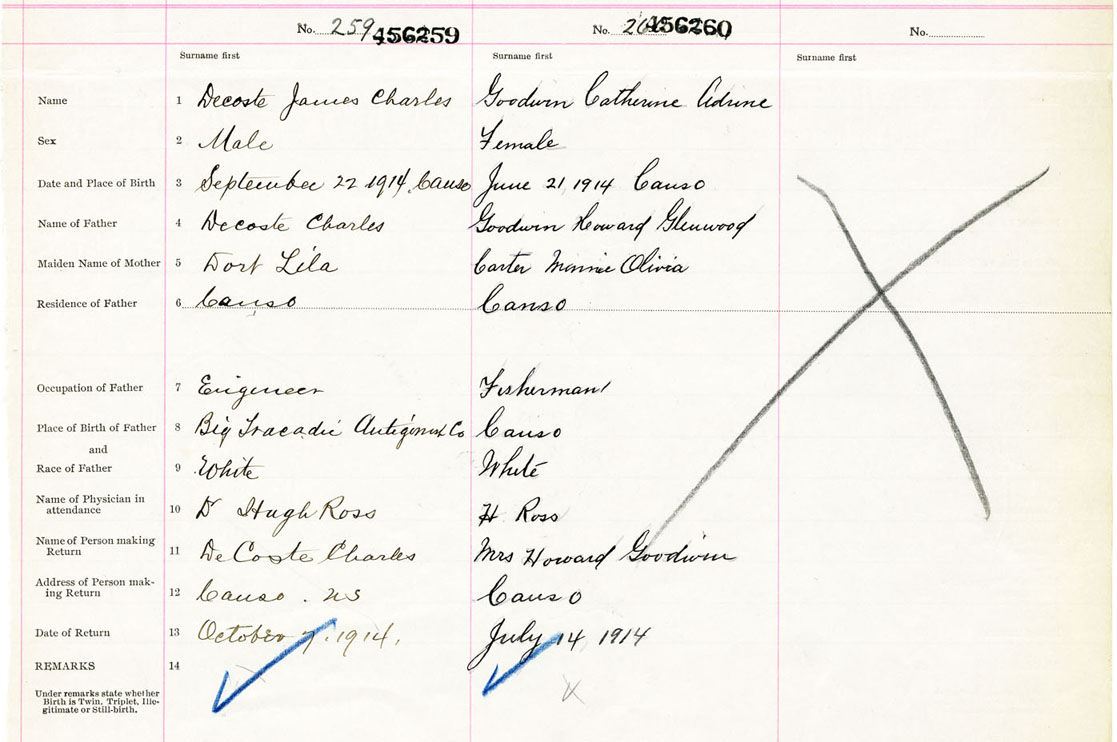 No. 259 456259 No. 260 456260 No.
Surname first Surname first Surname first
Name 1 Decoste James Charles Goodwin Catherine Adrine
Sex 2 Male Female
Date and Place of Birth 3 September 22 1914, Canso June 21, 1914 Canso
Name of Father 4 Decoste Charles Goodwin Howard Glenwood
Maiden Name of Mother 5 Dort Lila Carter Minnie Olivia
Residence of Father 6 Canso Canso
Occupation of Father 7 Engineer Fisherman
Place of Birth of Father 8 Big Tracadie Antigonish Co Canso
and
Race of Father 9 White White
Name of Physician in
attendance 10 Dr Hugh Ross H Ross
Name of Person making
Return 11 DeCoste Charles Mrs Howard Goodwin
Address of Person mak-
ing Return 12 Canso . NS Canso
Date of Return 13 October 7, 1914, July 14 1914
REMARKS 14
Under remarks state whether
Birth is Twin, Triplet, Ille-
gitimate or Still-birth.